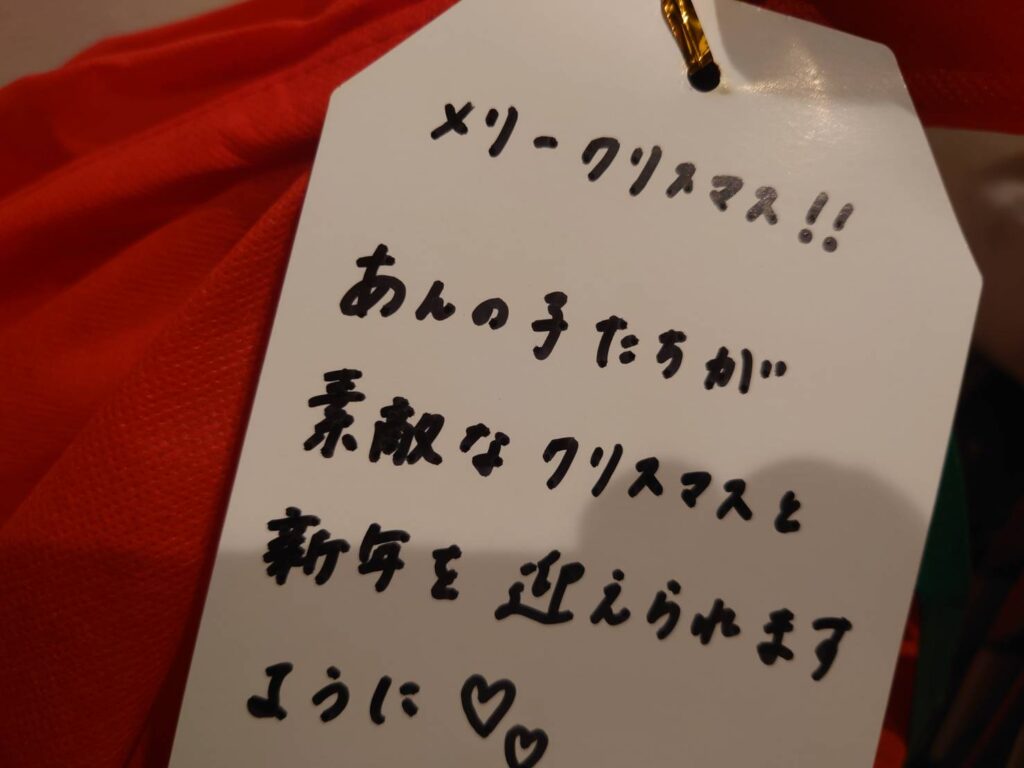 メリークリスマス!!
あんの子たちが
素敵なクリスマスと
新年を迎えられます
ように♡♡